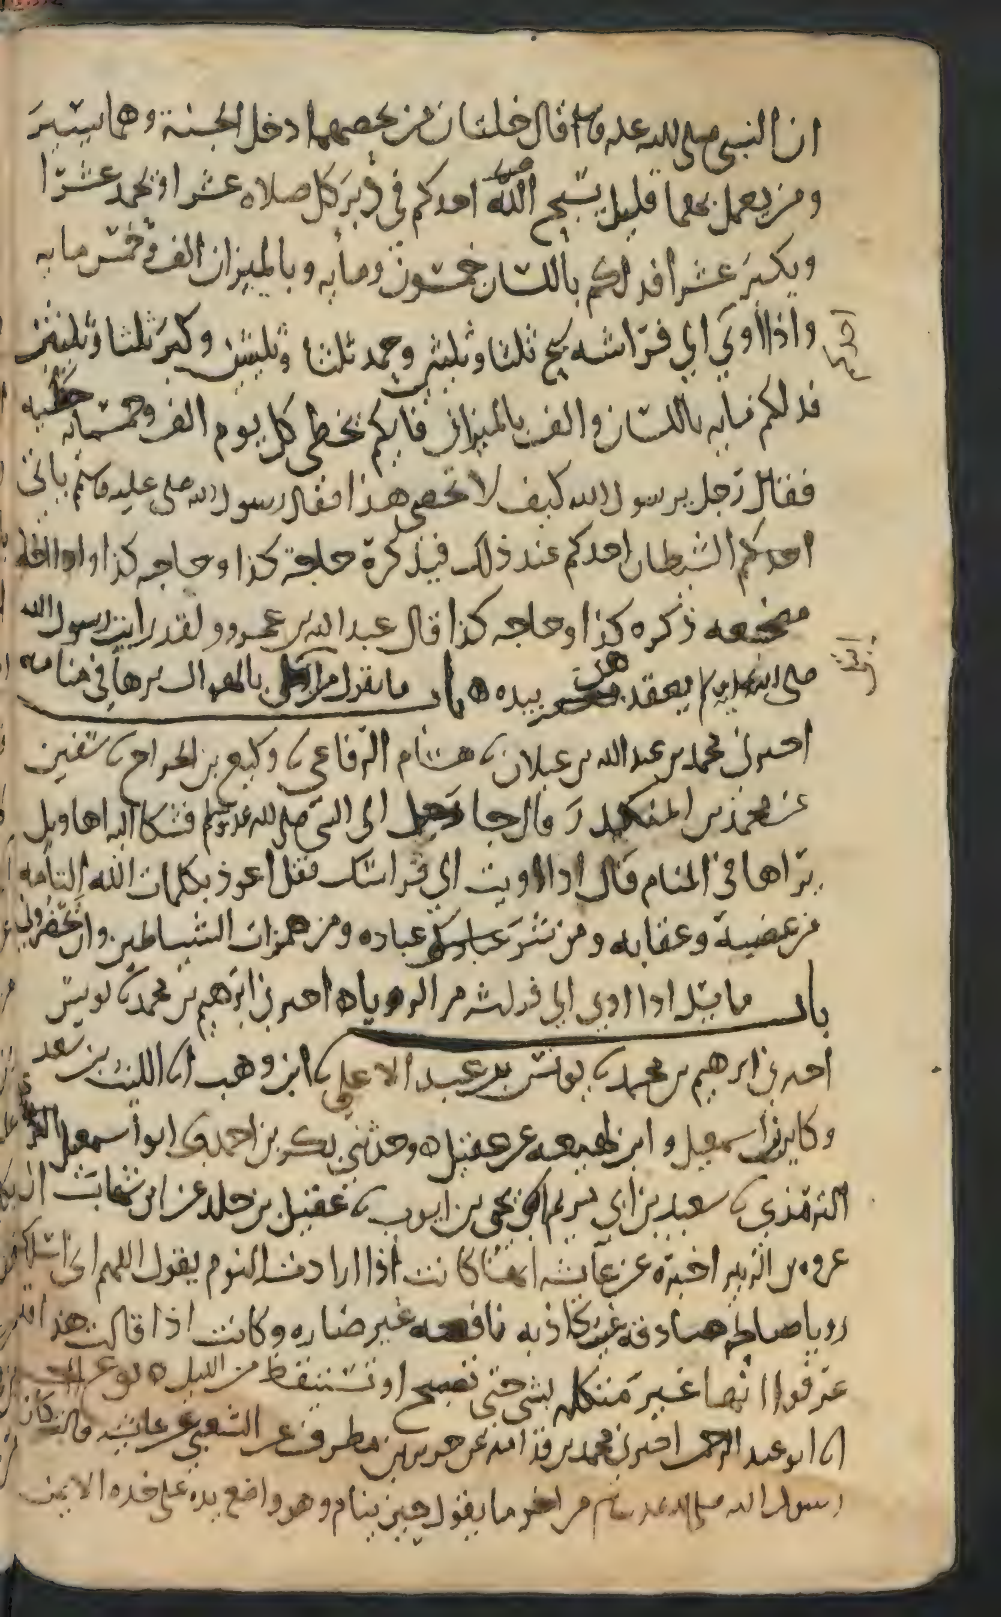 ان النبي صلى الله عليه وسلم قال خلتان من يحصهما ادخل الجنة وهما يسير
ومن يعمل بهما قليل يسبح الله احدكم في دبر كل صلاه عشرا ويحمد عشرا
ويكبر عشرا فذلكم باللسان خمسون ومايه وبالميزان الف وخمس مايه
واذا اوي الي فراشه سبح ثلثا وثلثين وحمد ثلثا وثلثين وكبر ثلثا وثلثين
فذلكم مايه باللسان والف بالميزان فايكم يخطي كل يوم الف وخمسمايه خطيه
فقال رجل يرسول الله كيف لا نحصي هذا فقال رسول الله صلى عليه وسلم ياتي
احدكم الشيطان احدكم عند ذلك فيذكره حاجة كذا وحاجه كذا واذا اخذ
مضجعه ذكره كذا وحاجه كذا قال عبد الله بن عمرو ولقد رايت رسول الله
صلى الله عليه وسلم يعقد هن بيده ه باب ما يقول من راى بالاهوال يرها في منامه
اخبرني محمد بن عبد الله بن غيلان، هشام الرفاعي، وكيع بن الجراح، سفين
عن محمد بن المنكدر قال جا رجل الى النبي صلى الله عليه وسلم فشكا اليه اهاويل
يراها في المنام قال اذا اويت الي فراشك فقل اعوذ بكلمات الله التامه
من غضبه وعقابه ومن شر عباده ومن همزات الشياطين وان يحضرون
باب ما يسل اذا اوي الي فراشه من الرويا ه اخبرني ابرهيم بن محمد، يونس
اخبرني ابرهيم بن محمد، يونس بن عبد الاعلي، ابن وهب، الليث بن سعد
وكاين اسمعيل وابن لهيعه عن عقيل ه وحدثني بكر بن احمد، ابو اسمعيل
الترمذي، سعيد بن ابي مريم، يحي بن ايوب، عقيل بن خلد عن ابن شهاب ان
عروه بن الزبير اخبره عن عايشه انها كانت اذا ارادت النوم يقول اللهم اني اسلك
رويا صالحه صادقه غير كاذبه نافعه غير ضاره وكانت اذا قالت هذا
عرفوا انها غير متكلمه بشي حتى تصبح او تستيقظ من الليل ه
ابو عبد الرحمن اخبرني محمد بن قدامه عن جرير عن مطرف عن الشعبي عن عايشه قالت كان
رسول الله صلى الله عليه وسلم من اخر ما يقول حين ينام وهو واضع يده على خده الايمن